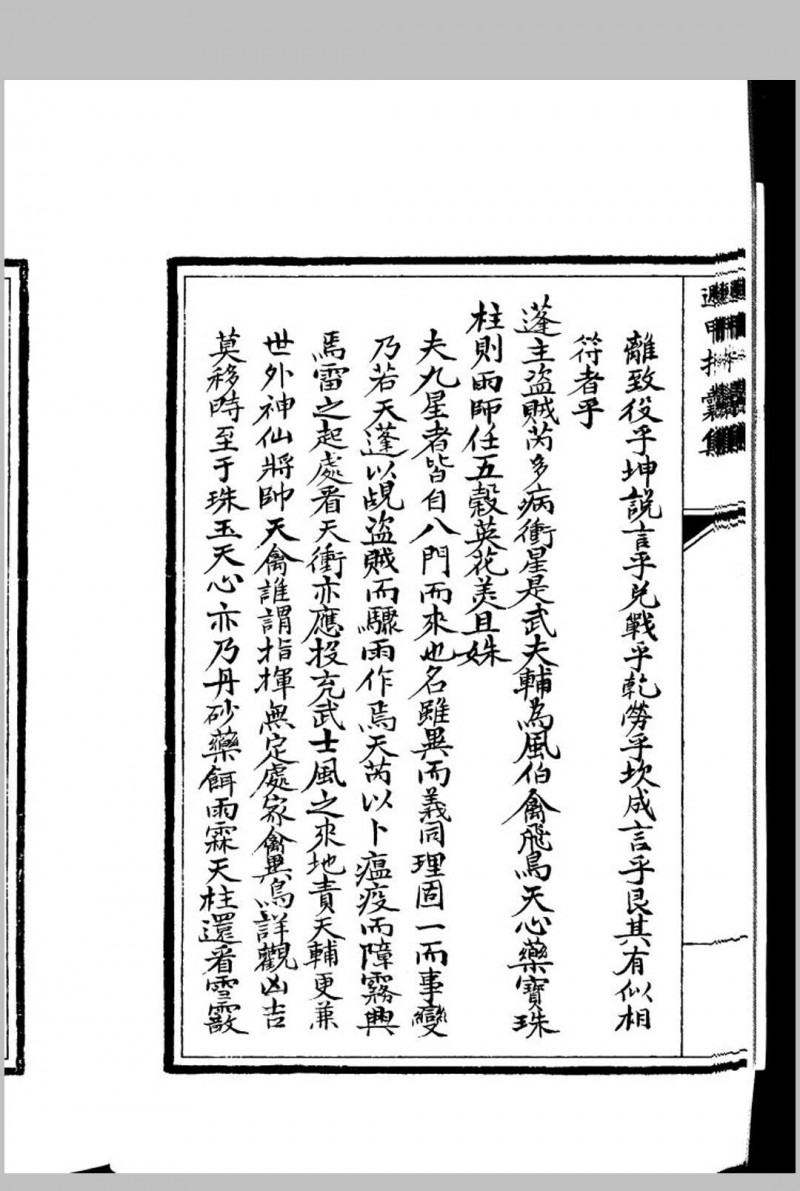 離致役乎坤說言乎兌戰乎乾勞乎坎成言乎艮其有似相
符者乎
蓬主盜賊芮多病衝星是武夫輔為風伯禽飛鳥天心藥寶珠
柱則雨師任五穀英花美且姝
夫九星者皆自八門而來也名雖異而義同理固一而事變
乃若天蓬以覘盜賊而驟雨作焉天芮以卜瘟疫而障霧興
焉雷之起處看天衝亦應投充武士風之來地責天輔更兼
世外神仙將帥天禽誰謂指揮無定處家禽異鳥詳觀凶吉
莫移時至于珠玉天心亦乃丹砂藥餌雨霖天柱還看雪霰